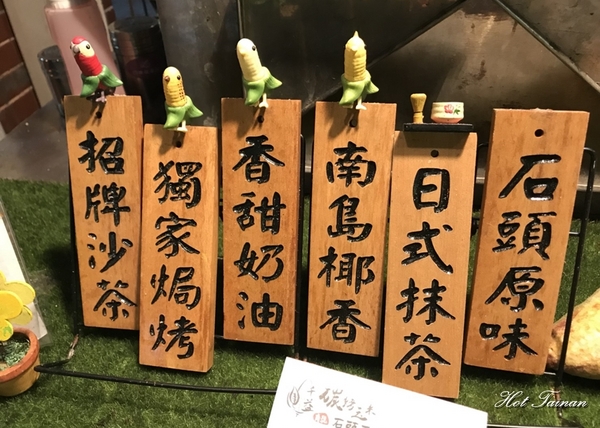 招牌沙茶
獨家焗烤
香甜奶油
南島椰香
日式抹茶
石頭原味
千益
碳烤玉米
石頭
Hot Tainan